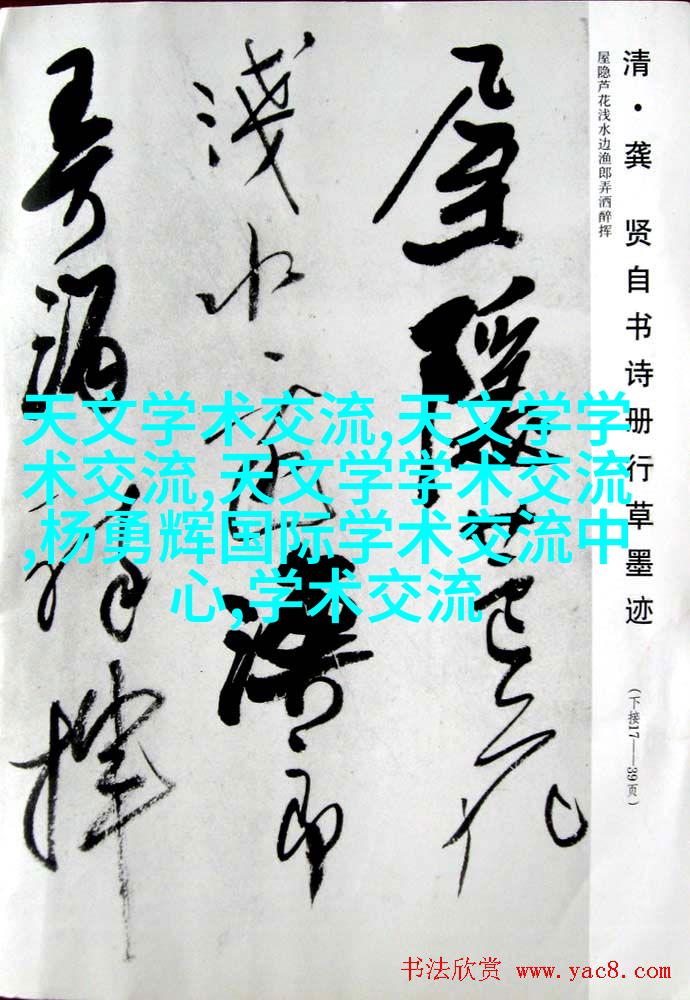 清·龚 贤自书诗册行草墨迹
屋隐芦花浅水边渔郎弄洒醉挥
(下接17——39页)
屋隐芦花
浅水边渔郎
弄酒醉挥
天文学术交流,天文学学
术交流,天文学学术交流
,杨勇辉国际学术交流中
心,学术交流
书法欣赏 www.yac8.com